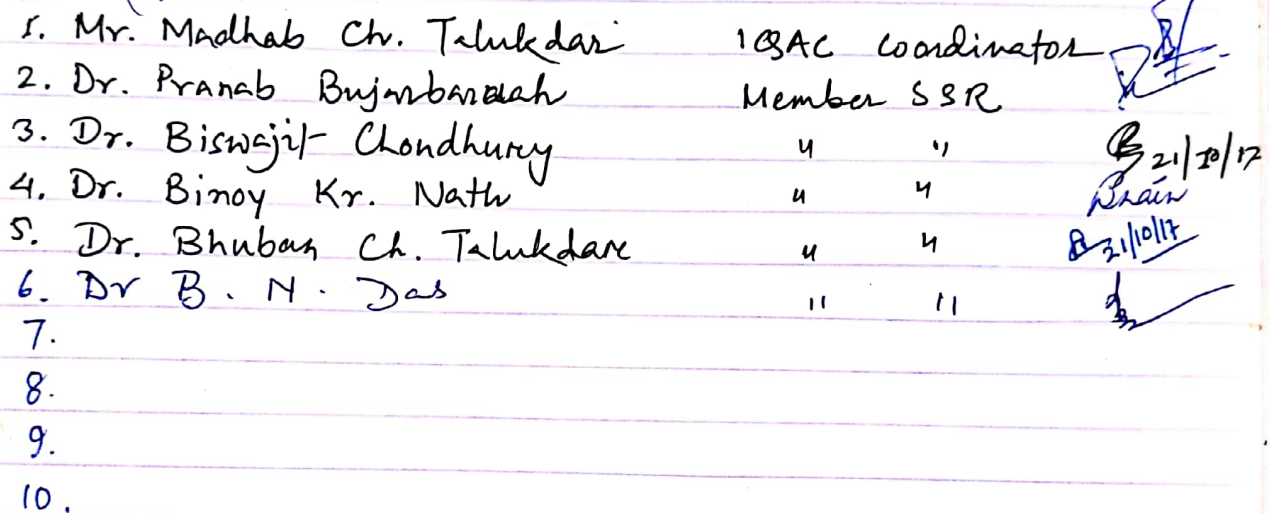 1. Mr. Madhab Ch. Talukdar IQAC Coordinator
2. Dr. Pranab Bujarbaruah Member SSR
3. Dr. Biswajit Choudhury " " 21/10/17
4. Dr. Binoy Kr. Nath " "
5. Dr. Bhuban Ch. Talukdar " " 21/10/17
6. Dr B. N. Das " "
7.
8.
9.
10.